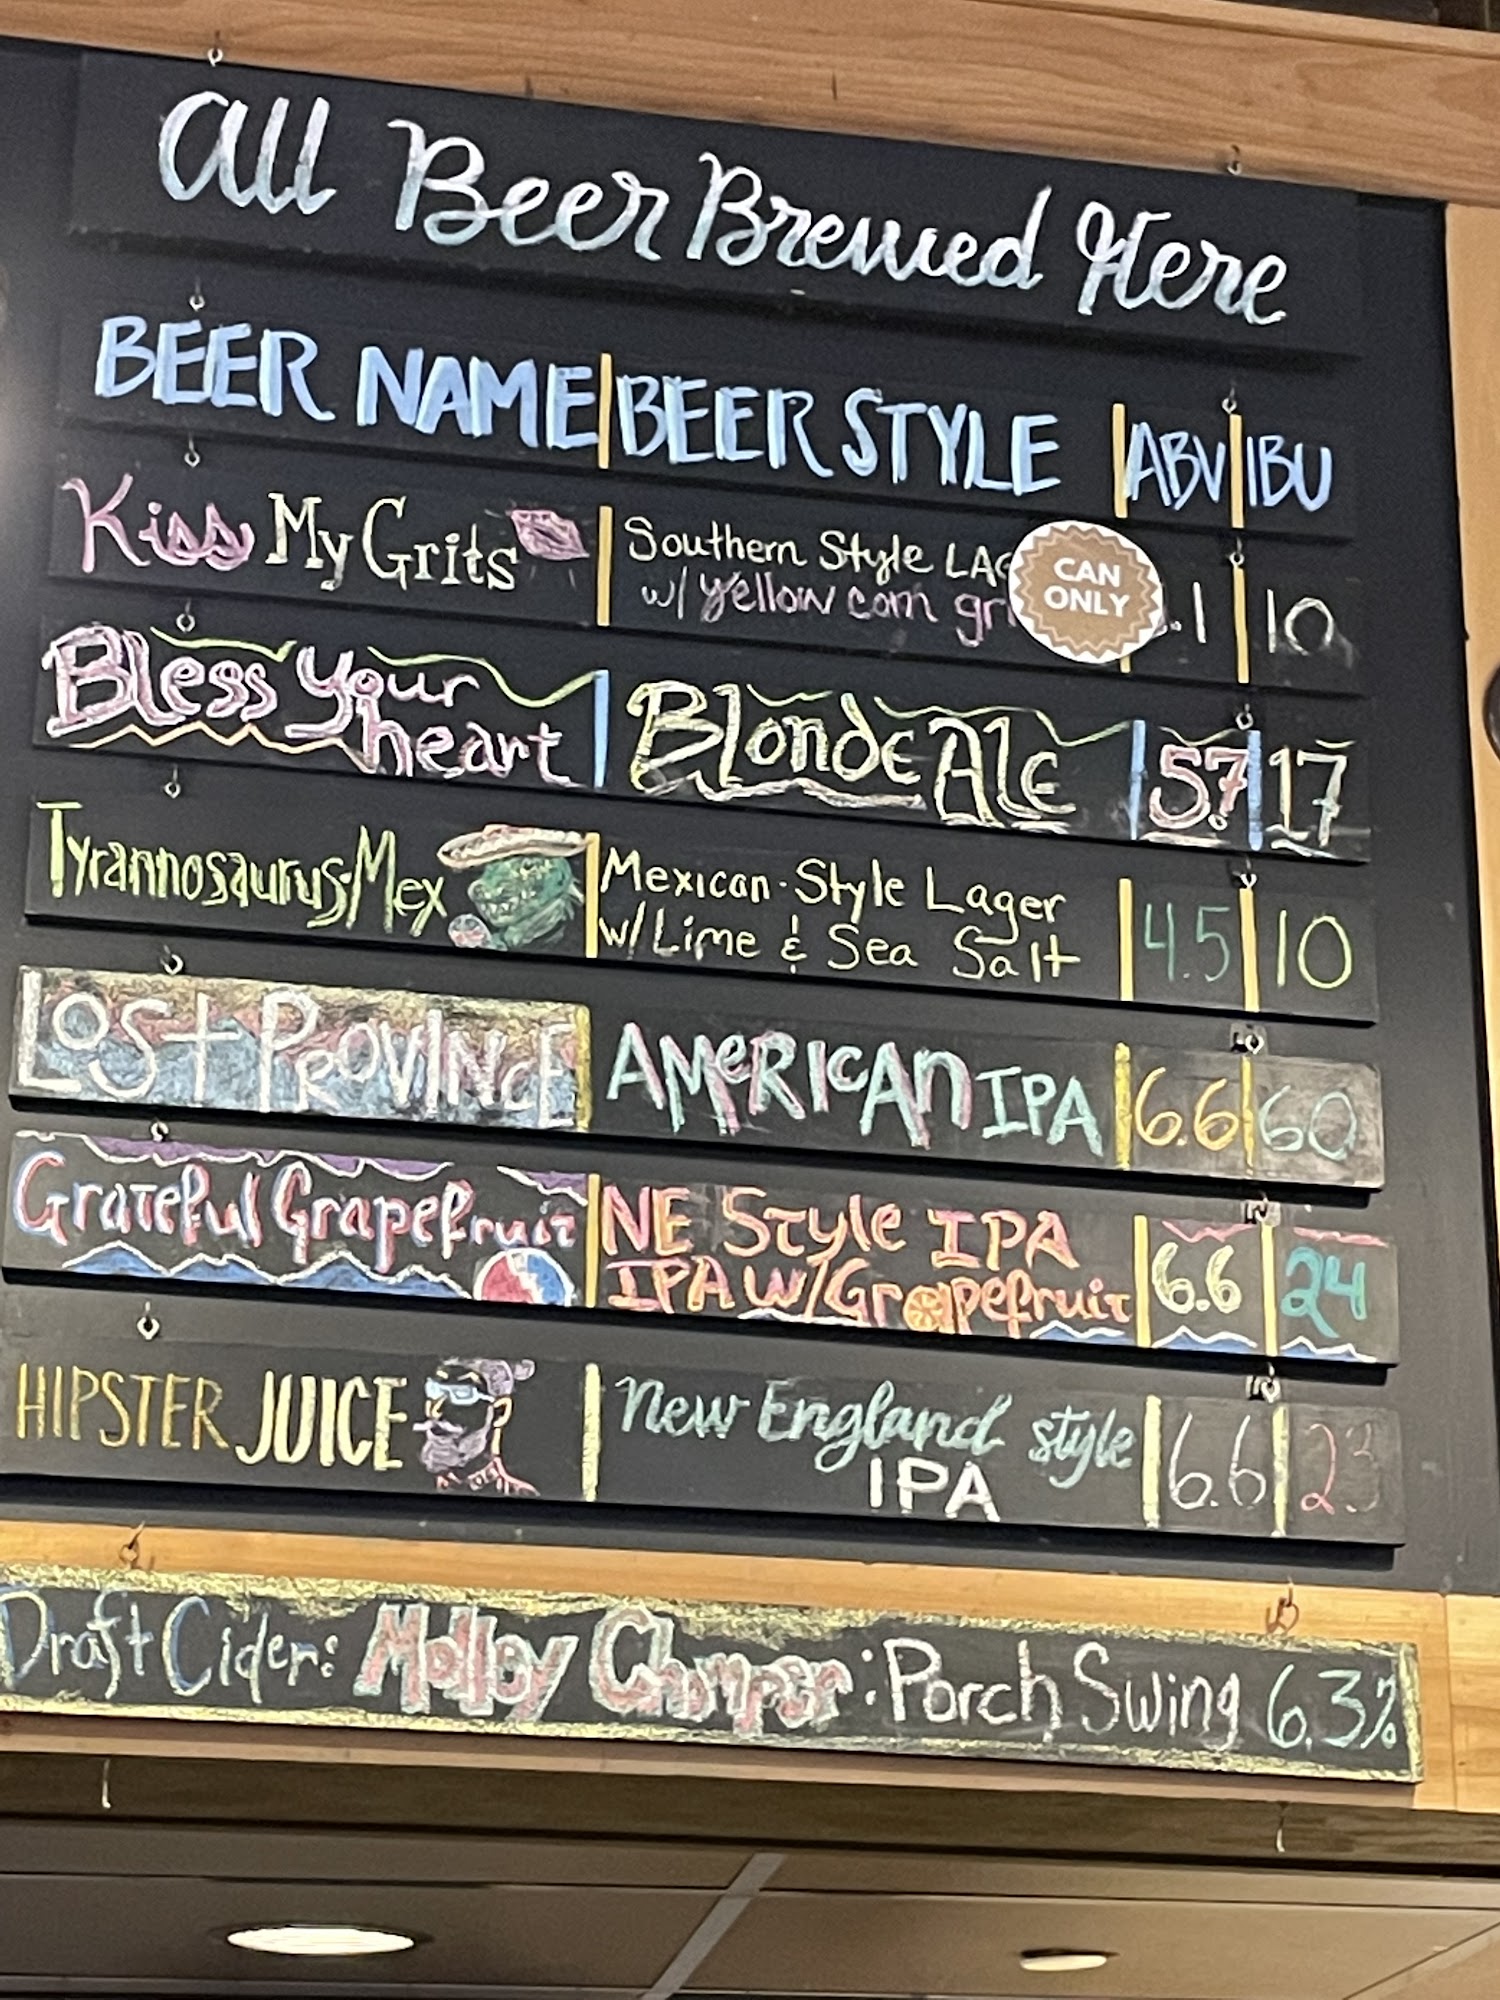 All Beer Brewed Here
BEER NAME BEER STYLE ABV IBU
Kiss My Grits Southern Style LAG .1 10
w/ yellow corn gri
CAN
ONLY
Bless Your heart Blonde Ale 5.7 17
Tyrannosaurus-Mex Mexican-Style Lager 4.5 10
w/ Lime & Sea Salt
LOST PROVINCE AMERICAN IPA 6.6 60
Grateful Grapefruit NE Style IPA 6.6 24
IPA w/ Grapefruit
HIPSTER JUICE New England style 6.6 23
IPA
Draft Cider: Molley Chomper: Porch Swing 6.3%